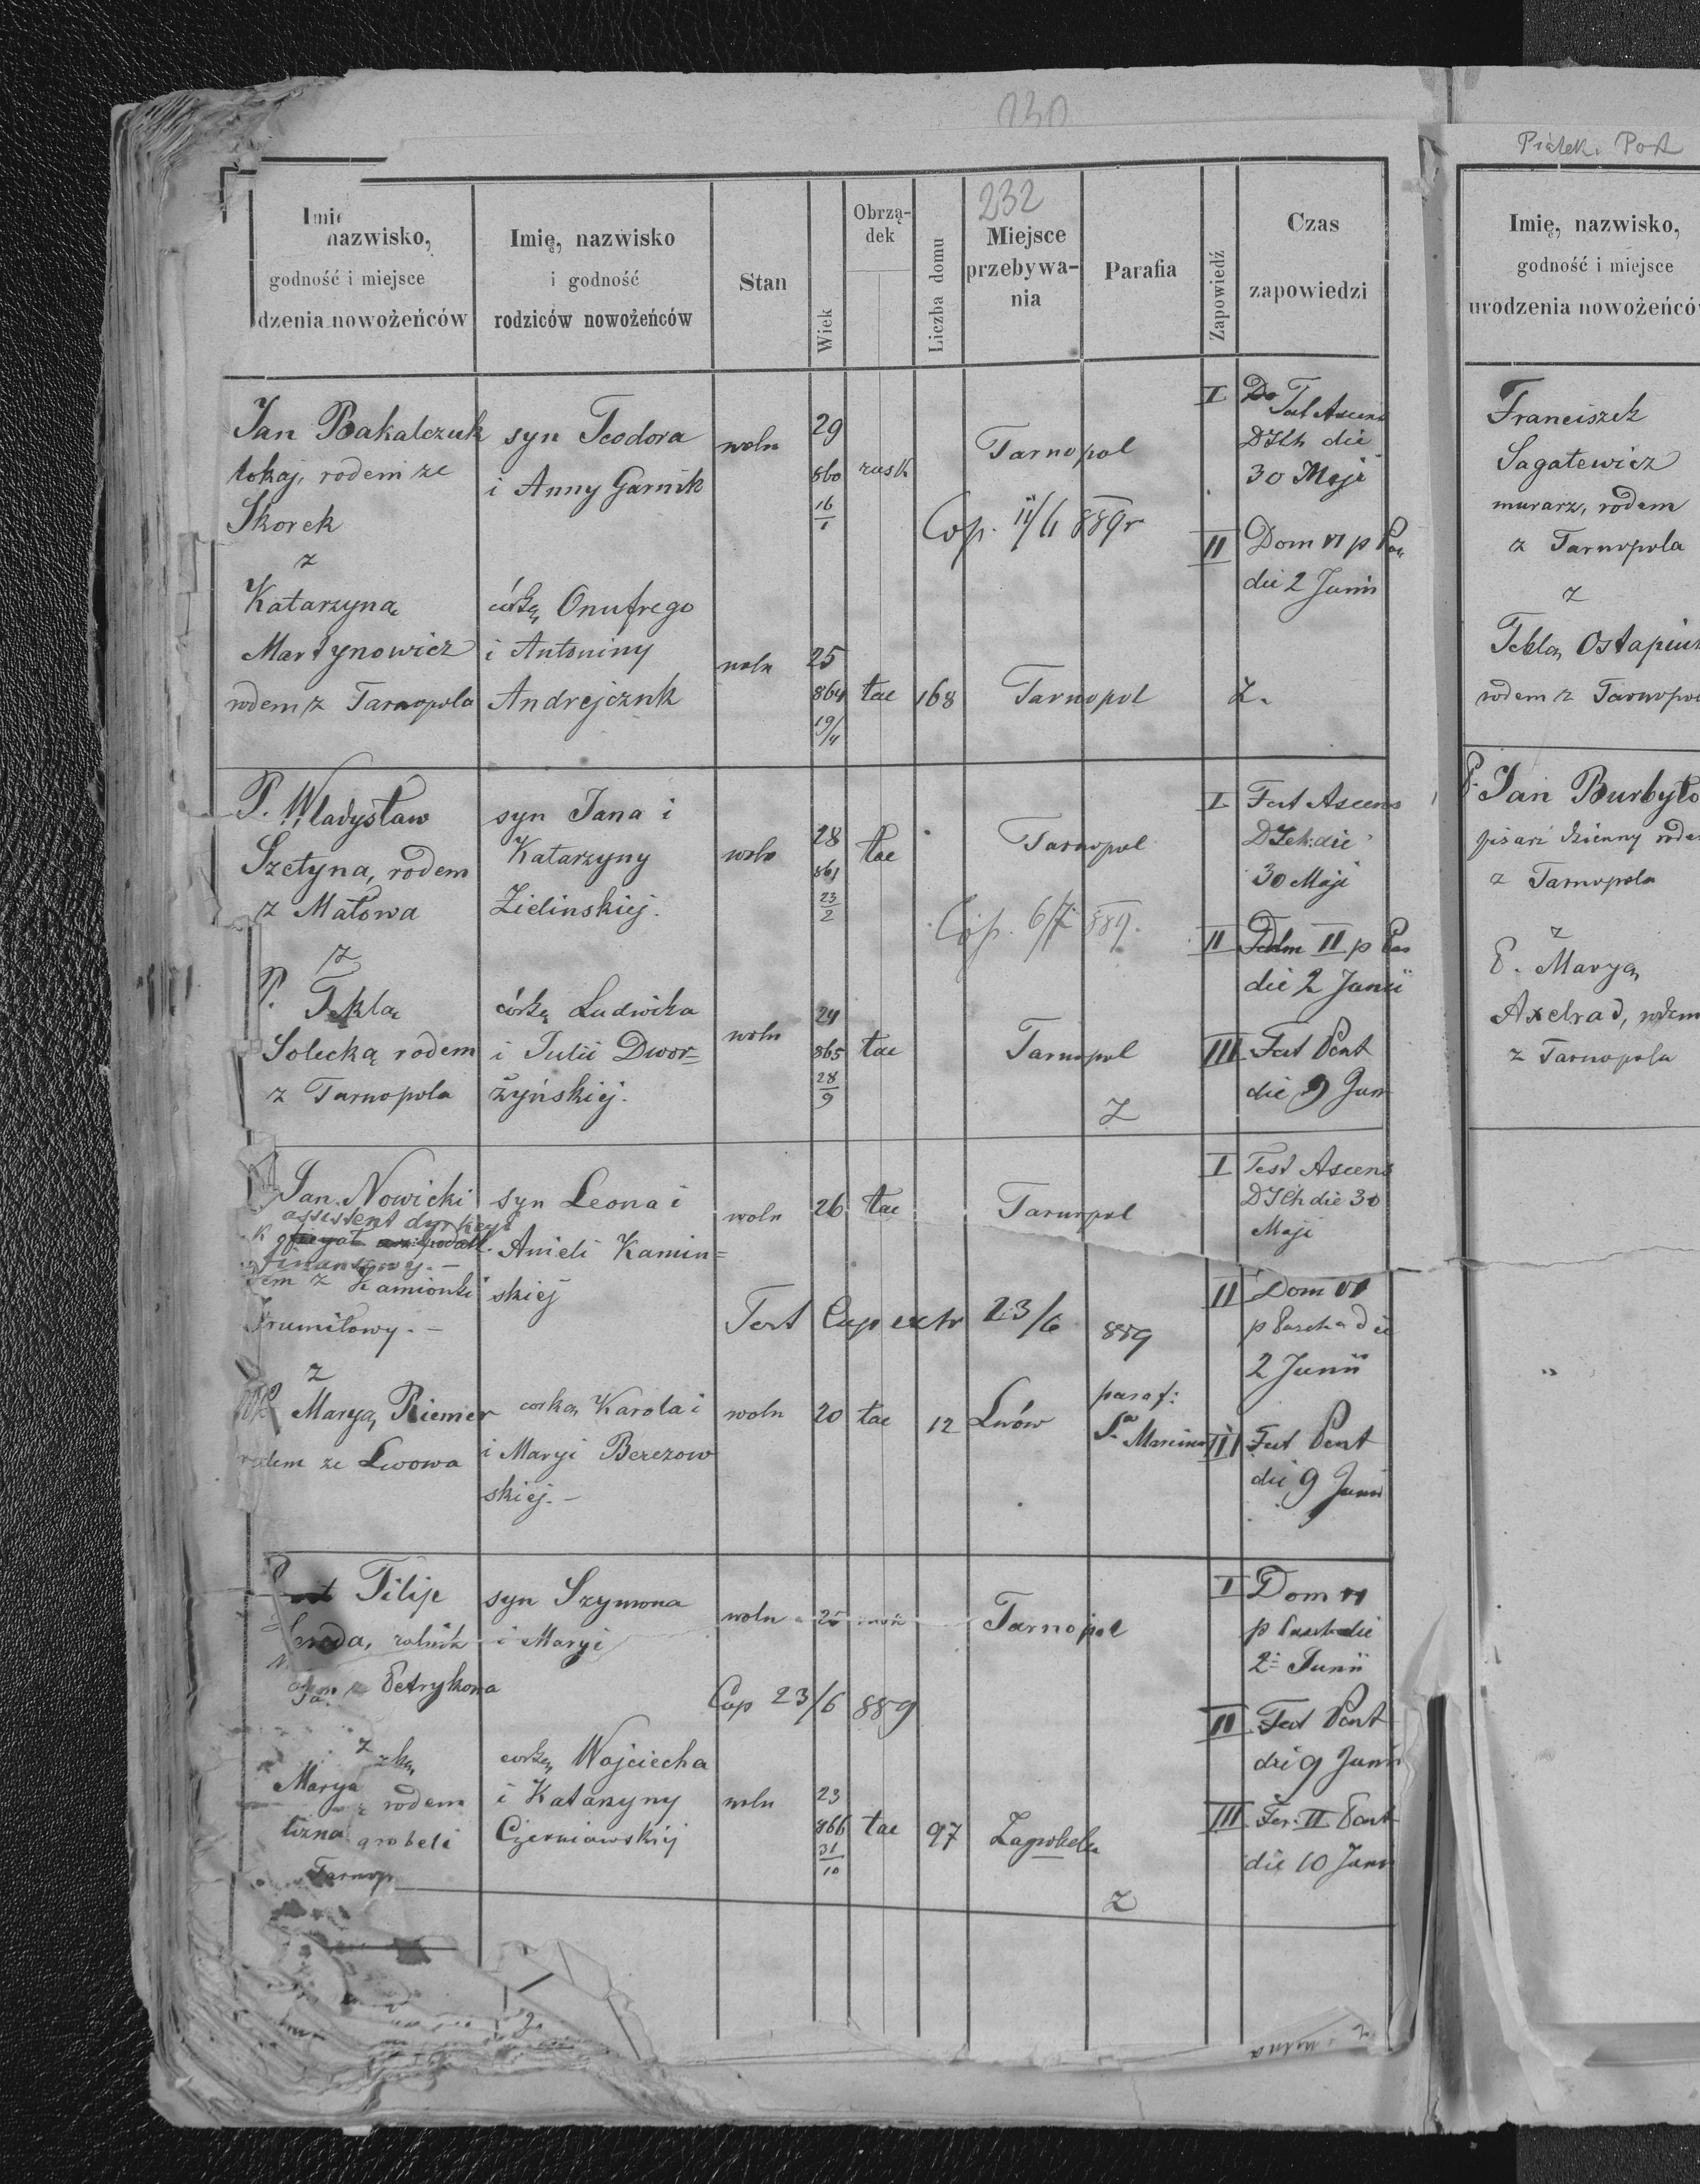 232
Imię
nazwisko,
godność i miejsce
dzenia nowożeńców
Imię, nazwisko
i godność
rodziców nowożeńców
Stan
Wiek
Obrzą-
dek
Liczba domu
Miejsce
przebywa-
nia
Parafia
Zapowiedź
Czas
zapowiedzi
Jan Bakalczuk
lokaj, rodem ze
Skorek
z
Katarzyną
Martynowicz
rodem z Tarnopola
syn Teodora
i Anny Garnik
córką Onufrego
i Antoniny
Andrejczuk
woln
29
860
16
1
rusk
Tarnopol
Cop. 11/6 889r
woln
25
864
19/4
łac
168
Tarnopol
Z.
I
Fest Ascens
DJCh die
30 Maji
II
Dom VI p
die 2 Junii
P. Władysław
Szetyna, rodem
z Małowa
z
P. Teklą
Solecką rodem
z Tarnopola
syn Jana i
Katarzyny
Zielinskiej.
córką Ludwika
i Julii Dwor=
żyńskiej.
woln
28
861
23
2
łac
Tarnopol
Cop. 6/7 889.
woln
24
865
28
9
łac
Tarnopol
Z
I
Fest Ascens
DJCh die
30 Maji
II
p
die 2 Junii
III
Fest Pent
die 9 Jun
Jan Nowicki
assistent dyrkcyi
finansowej. -
dem z Kamionki
Strumiłowy. -
z
Maryą Riemer
rodem ze Lwowa
syn Leona i
Anieli Kamin=
skiej
corką Karola i
i Maryi Berezow
skiej. -
woln
26
łac
Tarnopol
Test Cop extr 23/6 889
woln
20
łac
12
Lwów
paraf:
Marcina
I
Fest Ascens
DJCh die 30
Maji
II
Dom VI
p Pascha die
2 Junii
III
Fest Pent
die 9 Junii
Filip
rolnik
z Petrykowa
z
Marya
rodem
grobeli
Tarnop
syn Szymona
i Maryi
corką Wojciecha
i Katarzyny
Czerniawskiej
woln
25
Tarnopol
Cop 23/6 889
woln
23
866
31
10
łac
97
Zagrobela
Z
I
Dom VI
p Pasch die
2 Junii
II
Fest Pent
die 9 Junii
III
Fer. II Pent
die 10 Junii
Piątek. Post
Imię, nazwisko,
godność i miejsce
urodzenia nowożeńcó
Franciszek
Sagatewicz
murarz, rodem
z Tarnopola
z
Teklą Ostapiuk
rodem z Tarnopol
P. Jan Burbyło
pisarz dzienny rode
z Tarnopola
z
P. Maryą
Axelrad, rodem
z Tarnopola